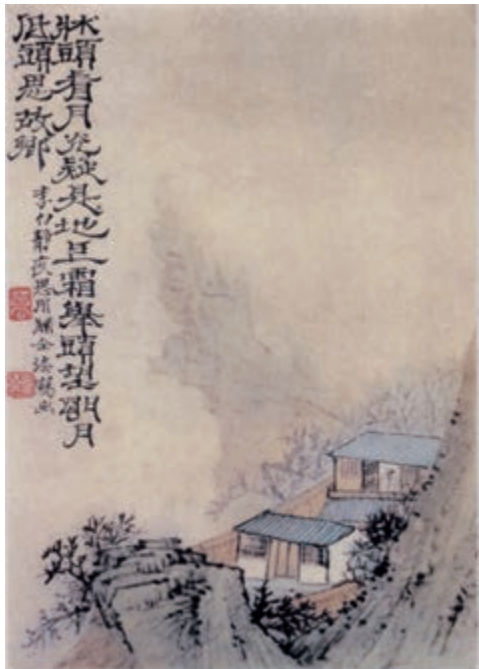 牀頭看月光疑是地上霜舉頭望明月
低頭思故鄉
李白靜夜思用